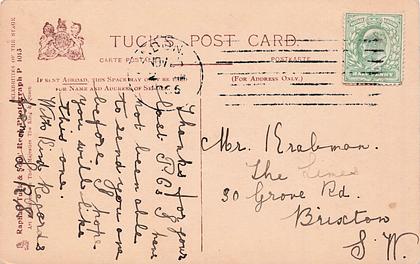 TUCK'S POST CARD.
CARTE POSTALE
POSTKARTE
IF SENT ABROAD, THIS SPACE MAY
FOR NAME AND ADDRESS OF
(FOR ADDRESS ONLY.)
CELEBRITIES OF THE STAGE
PHOTOGRAPH P 1013
NOV
Thanks for your
last P.C's I have
not been able
to send you one
before. I hope
you will like
this one.
With Kind Regards
Mr.
The
30 Grove Rd.
Brixton
S.W.